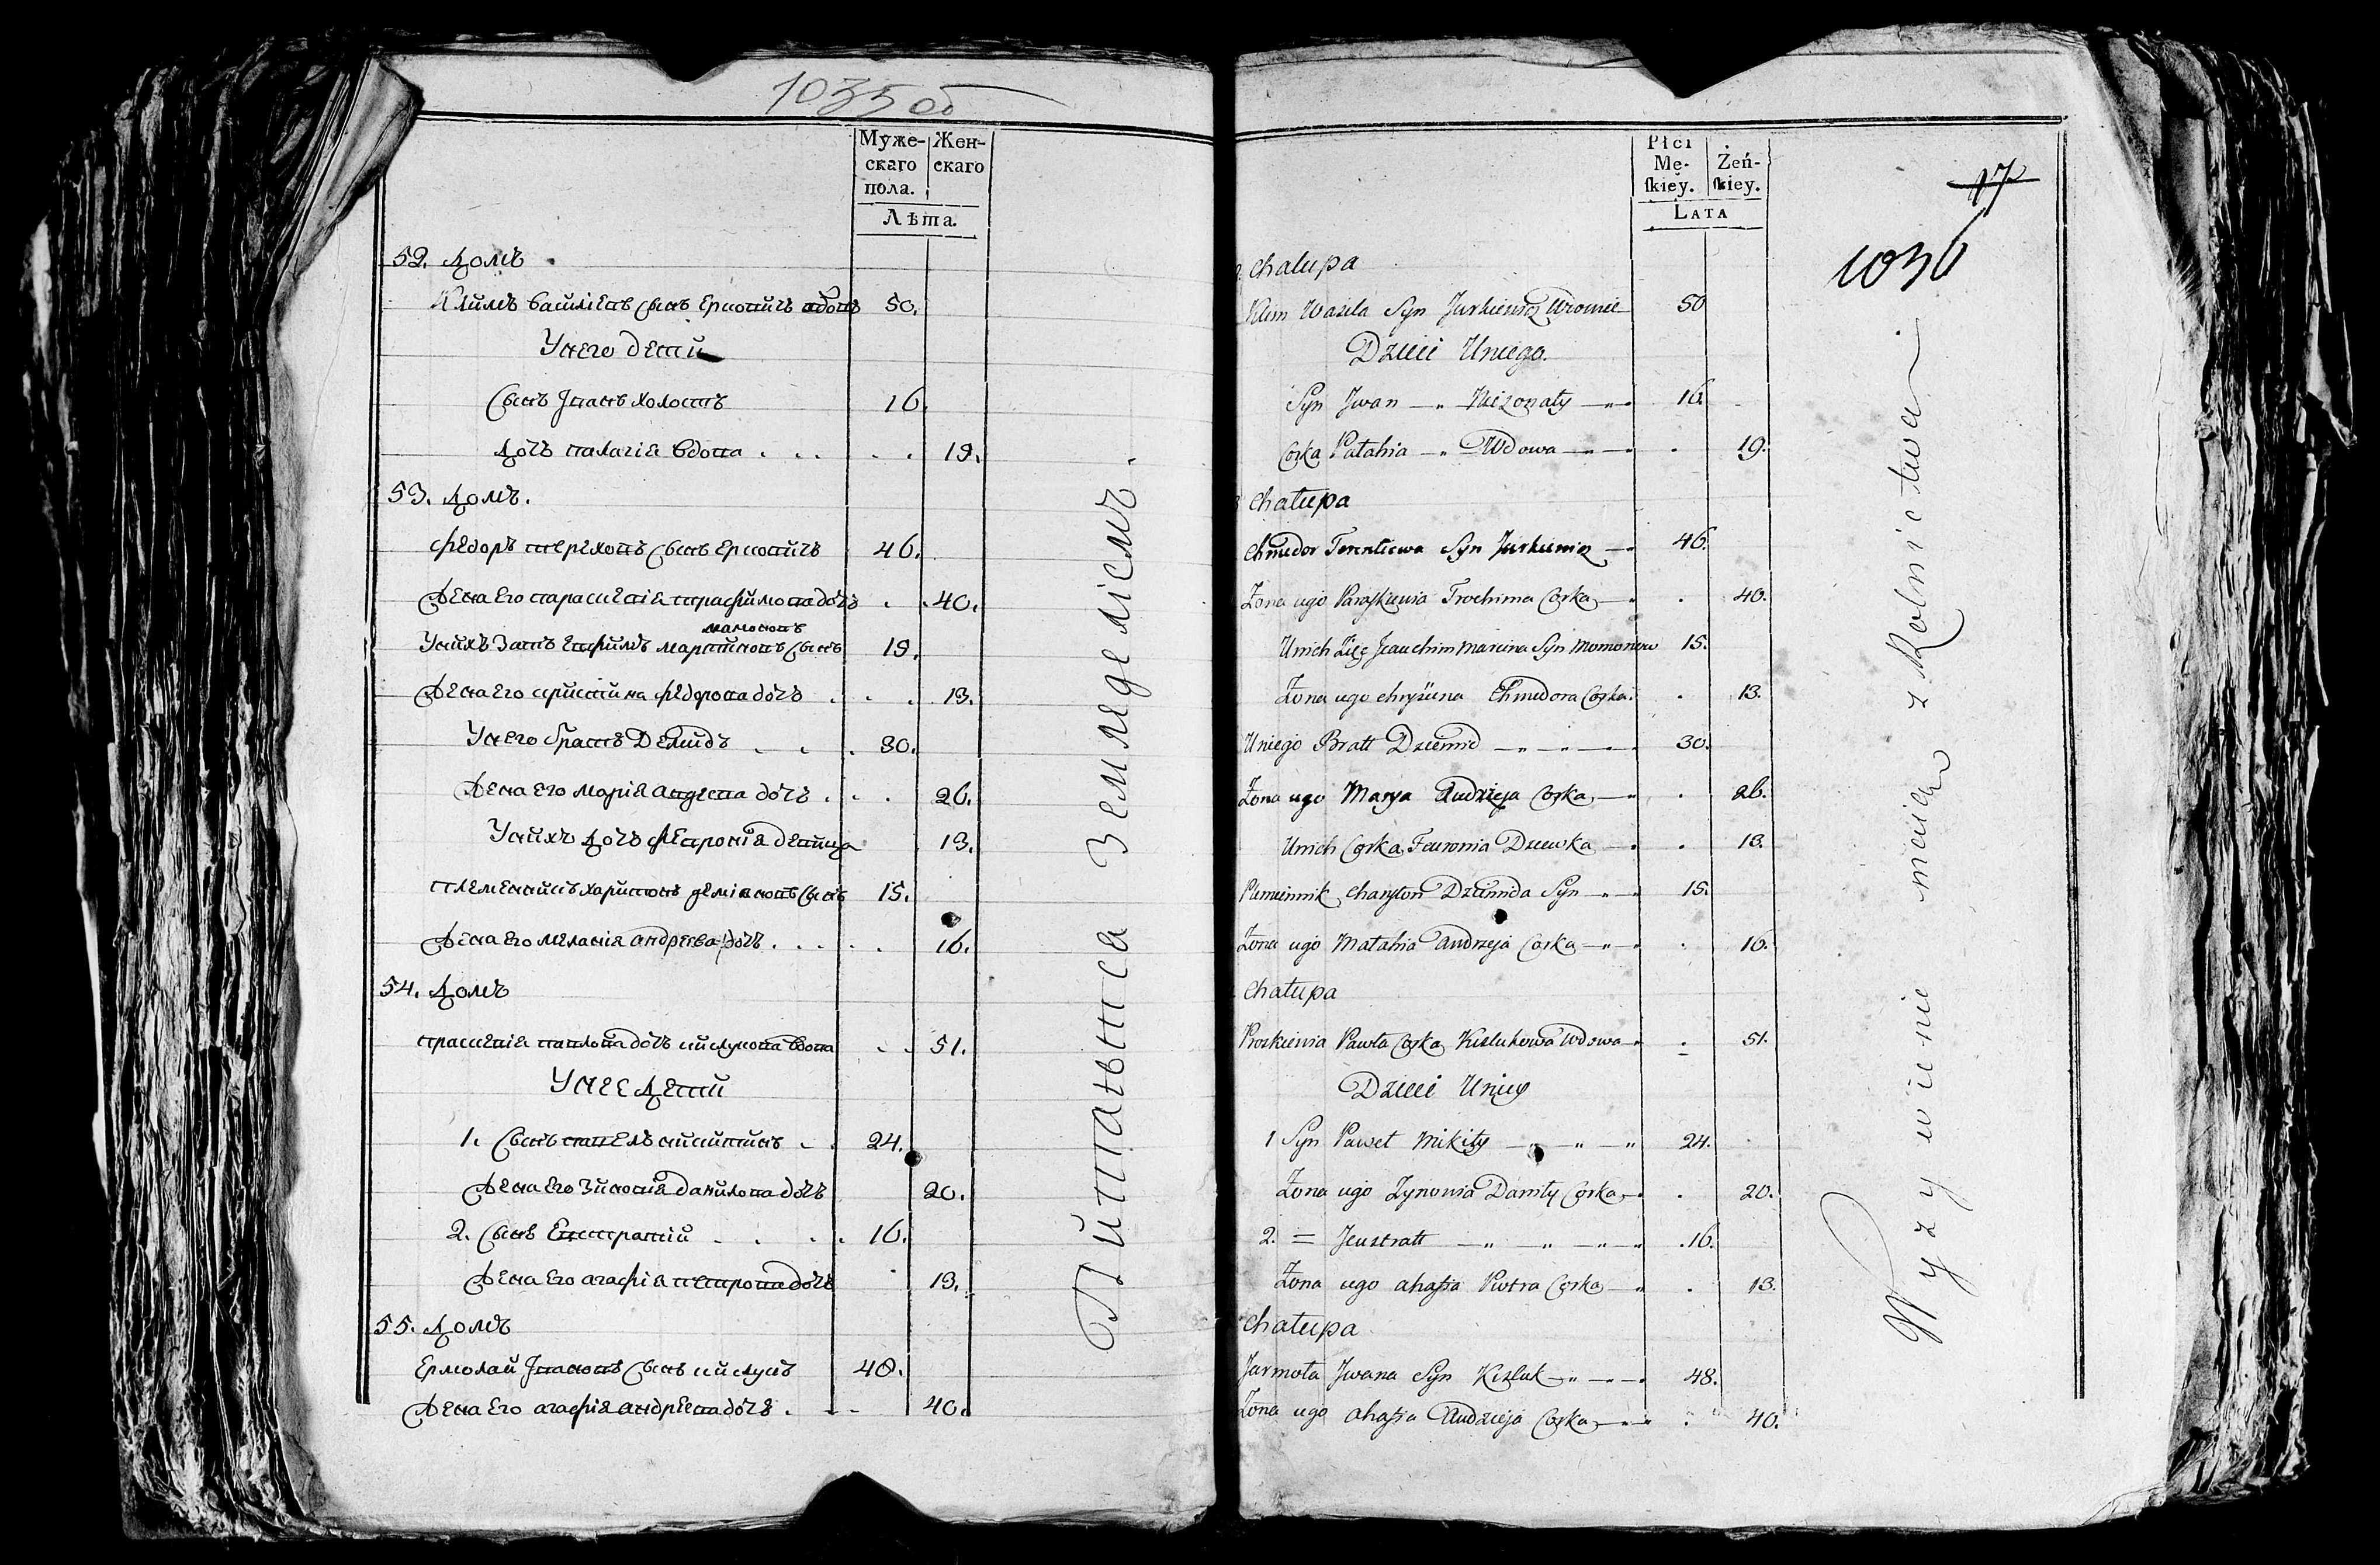 1035 об
Муже-
скаго
пола.
Жен-
скаго
Лѣта.
52. Домъ
Климъ васильевъ сынъ Ерковичъ вдовъ 50.
У него дети
Сынъ Іванъ холостъ 16.
Дочь палагія вдова . . . . . 19.
53. Домъ.
Федоръ тереховъ сынъ Ерковичъ 46.
Жена его параскевія трафимова дочь . . 40.
мамоновъ
У нихъ зать Ефимъ мартиновъ сынъ 19.
Жена его христина федорова дочь . . . 13.
У него братъ Демидъ . . . 30.
Жена его марія андреева дочь . . . 26.
У нихъ дочь Февронія девица 13.
племенникъ харитонъ деміановъ сынъ 15.
Жена его меланія андреева дочь . . . . . 16.
54. Домъ
праскевія павлова дочь кислукова вдова . . 51.
У нее дети
1. Сынъ павелъ никитинъ . . 24.
Жена его Зиновія данилова дочь 20.
2. Сынъ Евстратій . . . . 16.
Жена его агафія петрова дочь 13.
55. Домъ
Ермолай Івановъ сынъ кислукъ 48.
Жена его агафія андреева дочь . - - 40.
Питаются земледелiемъ.
Płci
Mę-
skiey.
Żeń-
skiey.
LATA
17
1036
Chałupa
Klim Wasila Syn Jurkiewicz Wdowiec 50
Dzieci Uniego.
Syn Jwan — " Niezonaty — " 16.
Corka Pałahia — " Wdowa — " — . 19.
Chałupa
Chwiedor Terentiewa Syn Jurkiewicz — 46.
Żona iego Paraskiewia Trochima Corka — . 40.
Unich Zięć Jeauchim Marcina Syn Momonow 15.
Żona iego Chrystina Chwiedora Corka . 13.
Uniego Bratt Dziemid — " — " — 30.
Żona iego Marya Andrzeja Corka — " . 26.
Unich Corka Fewronia Dziewka — . 13.
Plemiennik Charyton Dziemida Syn — " — 15.
Żona iego Małahia Andrzeja Corka — " — . 16.
Chałupa
Proskiewia Pawła Corka Kislukowa Wdowa — " . 51.
Dzieci Uniey
1 Syn Paweł Mikity — " — " — " 24.
Żona iego Zynowia Daniły Corka — . 20.
2. = Jeustratt — " — " — " — " 16.
Żona iego Ahafia Piotra Corka — " . 13.
Chałupa
Jarmoła Jwana Syn Kisluk — " — — 48.
Żona iego Ahafia Andrzeja Corka — " — " . 40.
Wyzywienie maią z Rolnictwa.